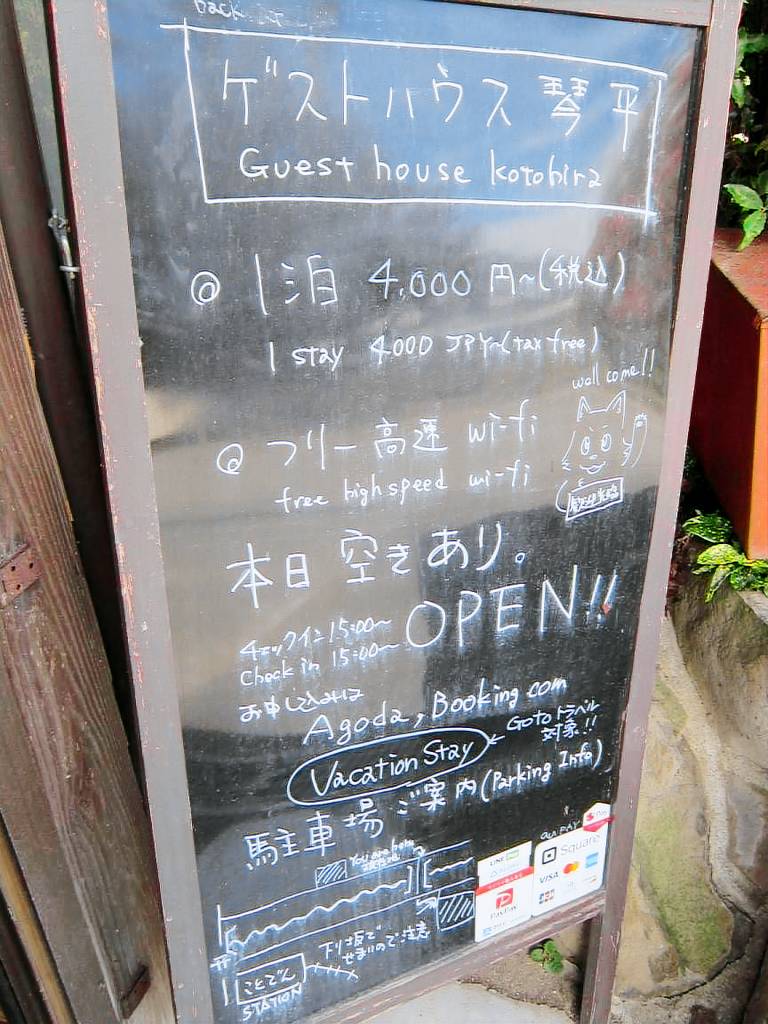 back
ゲストハウス 琴平
Guest house kotohira
@ 1泊 4,000 円~(税込)
1 stay 4000 JPY~(tax free)
well come!!
@ フリー高速 wi-fi
free high speed wi-fi
本日 空きあり。
OPEN!!
チェックイン 15:00~
Check in 15:00~
お申し込みは
Agoda, Booking.com
Vacation Stay
Goto トラベル
対象!!
駐車場 ご案内 (Parking Info)
You are here
下り坂で
せまいのでご注意
ことでん
STATION
LINE Pay
PayPay
au PAY
Square
VISA
JCB